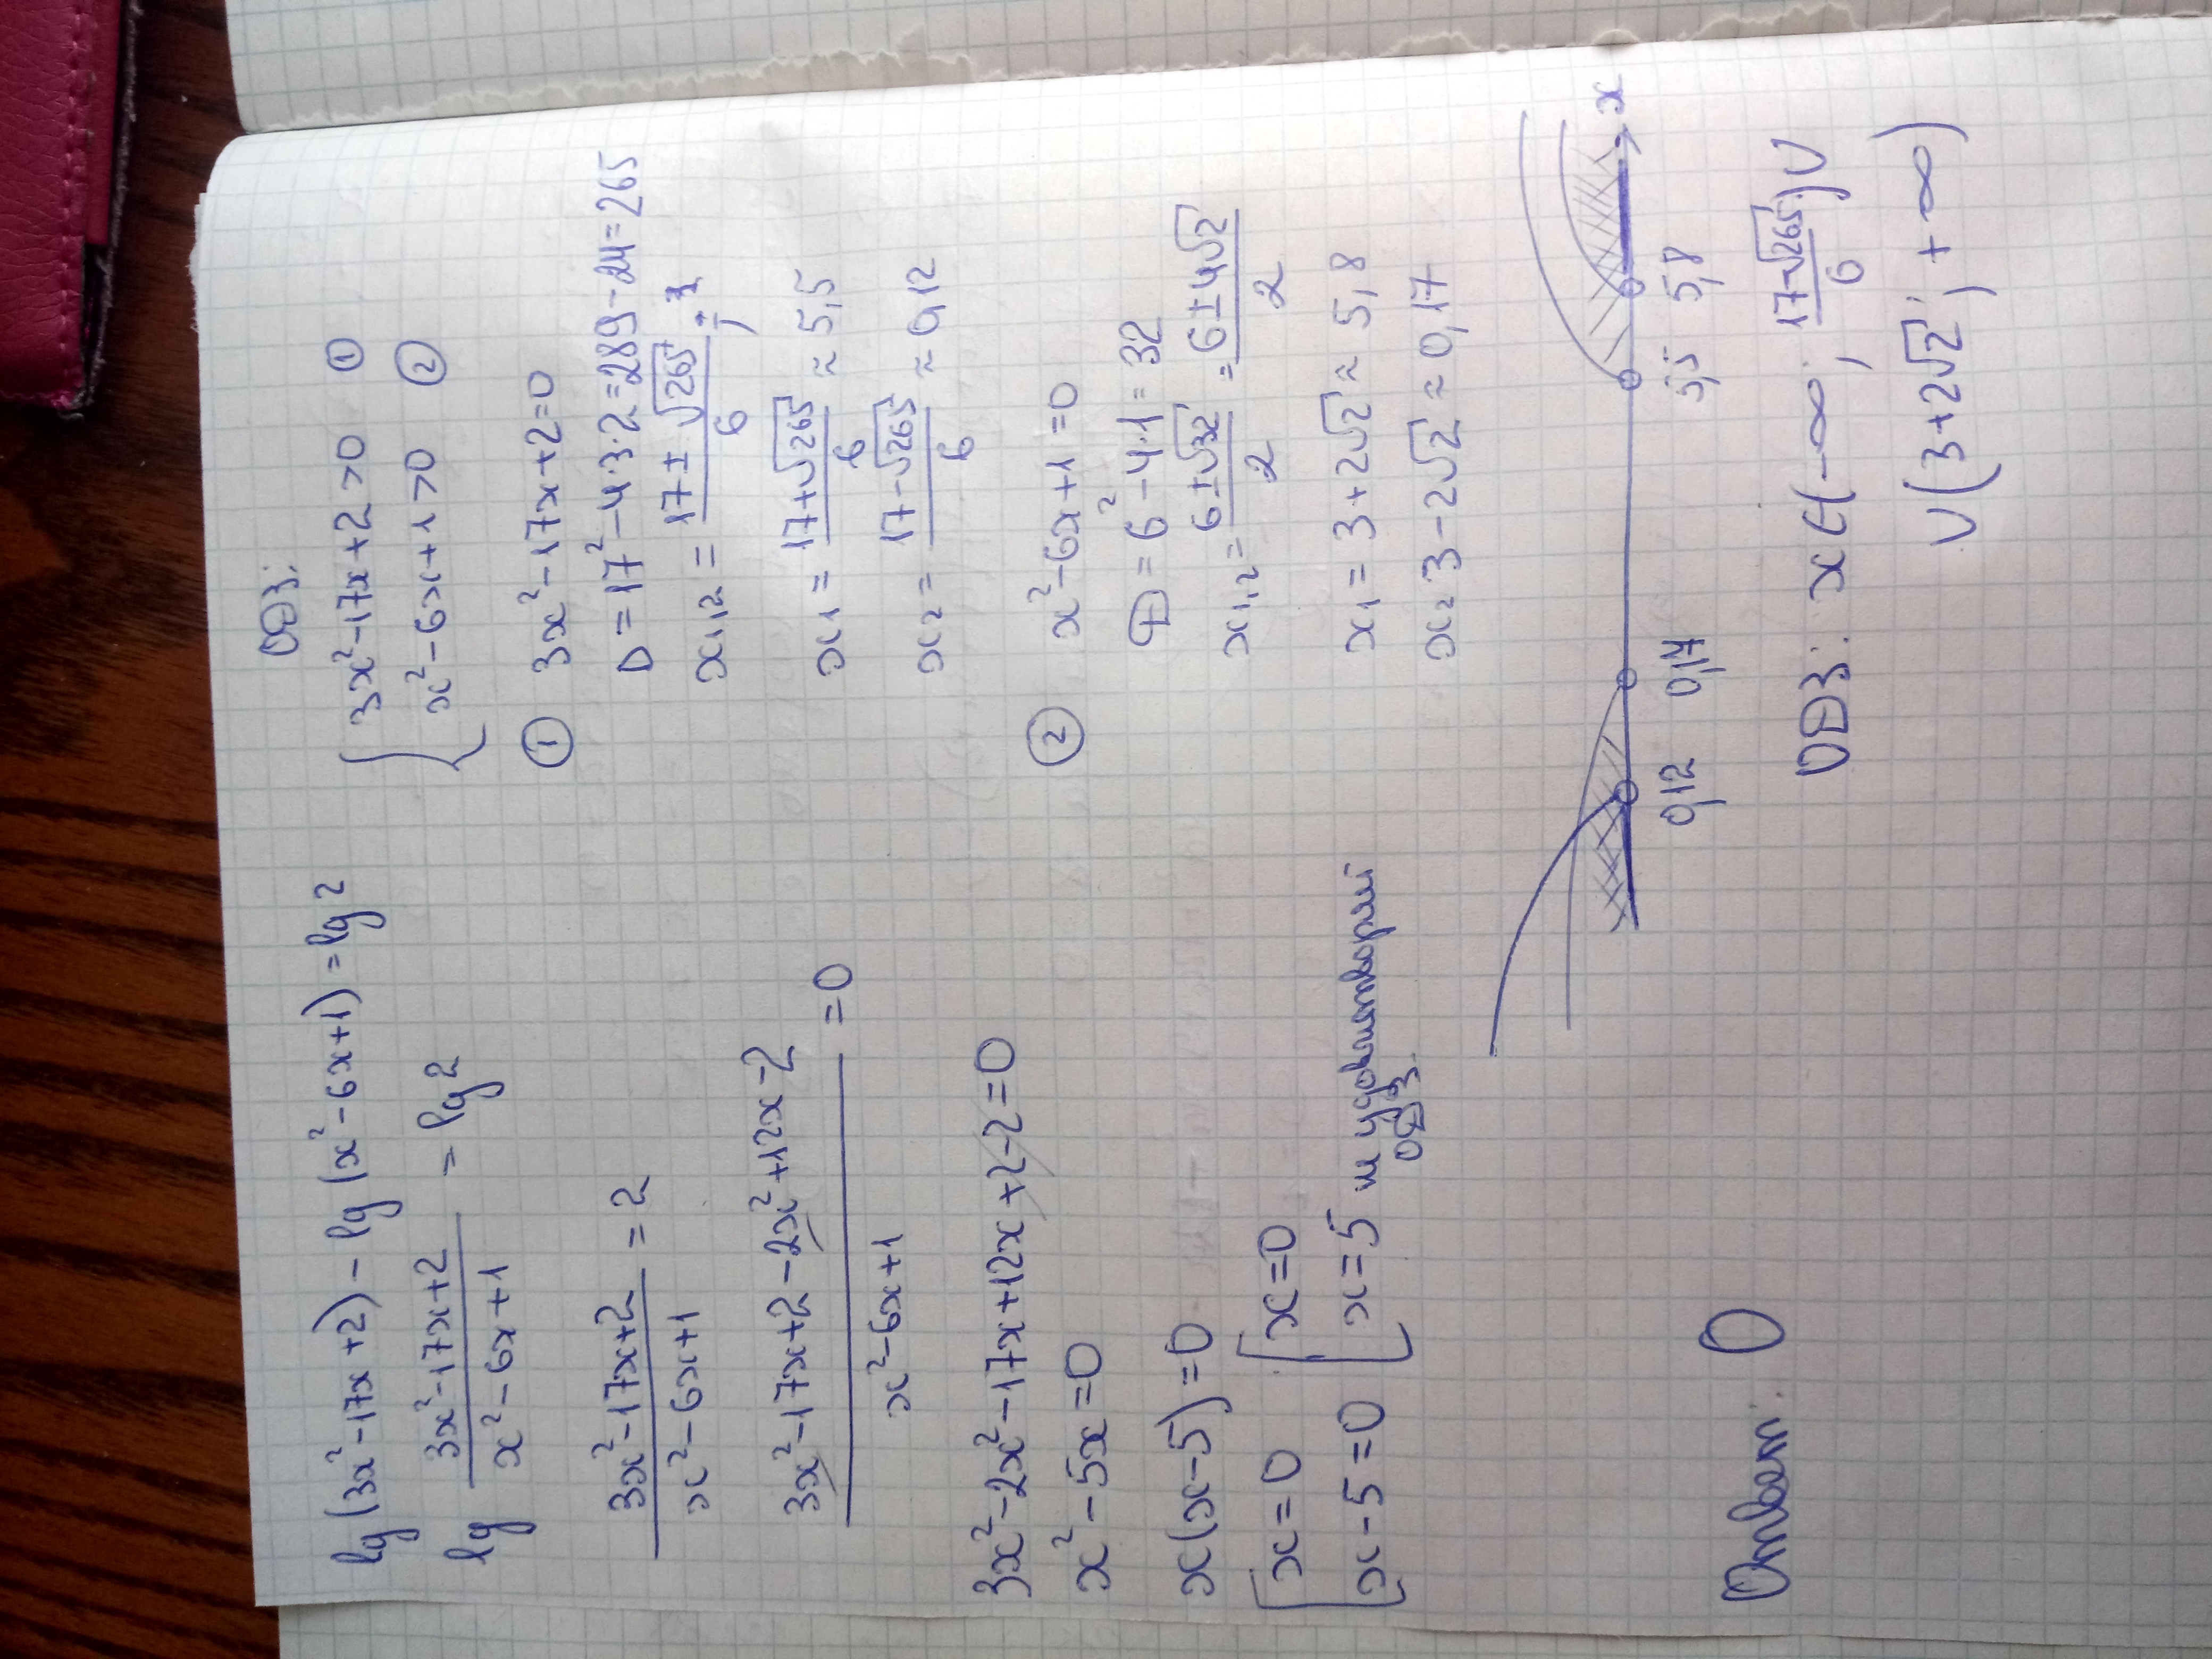 lg(3x²-17x+2)-lg(x²-6x+1)=lg2
lg (3x²-17x+2)/(x²-6x+1) = lg2
(3x²-17x+2)/(x²-6x+1) = 2
(3x²-17x+2-2x²+12x-2)/(x²-6x+1) = 0
3x²-2x²-17x+12x+2-2=0
x²-5x=0
x(x-5)=0
[x=0 [x=0
[x-5=0 [x=5 не удовлетворяет
ОДЗ.
Ответ: 0
ОДЗ:
{3x²-17x+2>0 ①
{x²-6x+1>0 ②
① 3x²-17x+2=0
D=17²-4·3·2=289-24=265
x1,2 = (17±√265)/6;
x1 = (17+√265)/6 ≈ 5,5
x2 = (17-√265)/6 ≈ 0,12
② x²-6x+1=0
D=6²-4·1=32
x1,2= (6±√32)/2 = (6±4√2)/2
x1=3+2√2 ≈ 5,8
x2 3-2√2 ≈ 0,17
x
0,12 0,17 5,5 5,8
ОДЗ: x∈(-∞; (17-√265)/6)∪
∪(3+2√2; +∞)